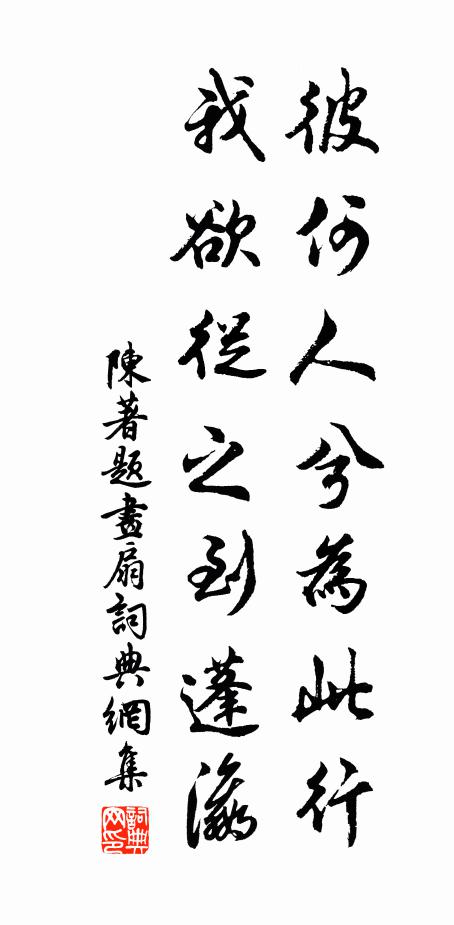 彼何人兮為此行
我欲從之到蓬瀛
陳著題畫扇詞典網集
詞典网印